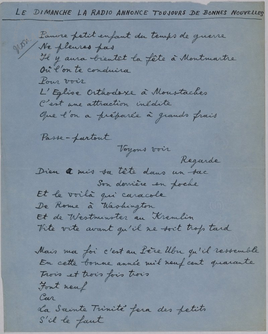 LE DIMANCHE LA RADIO ANNONCE TOUJOURS DE BONNES NOUVELLES
Pauvre petit enfant du temps de guerre
Ne pleures pas
Il y aura bientôt la fête à Montmartre
Où l'on te conduira
Pour voir
L'Eglise Orthodoxe à Moustaches
C'est une attraction inédite
Que l'on a préparée à grands frais
Passe-partout
Voyons voir
Regarde
Dieu a mis sa tête dans un sac
Son derrière en poche
Et le voilà qui caracole
De Rome à Washington
Et de Westminster au Kremlin
Vite vite avant qu'il ne soit trop tard
Mais ma foi c'est au Père Ubu qu'il ressemble
En cette bonne année mil neuf cent quarante
Trois et trois fois trois
Font neuf
Car
La Sainte Trinité fera des petits
S'il le faut